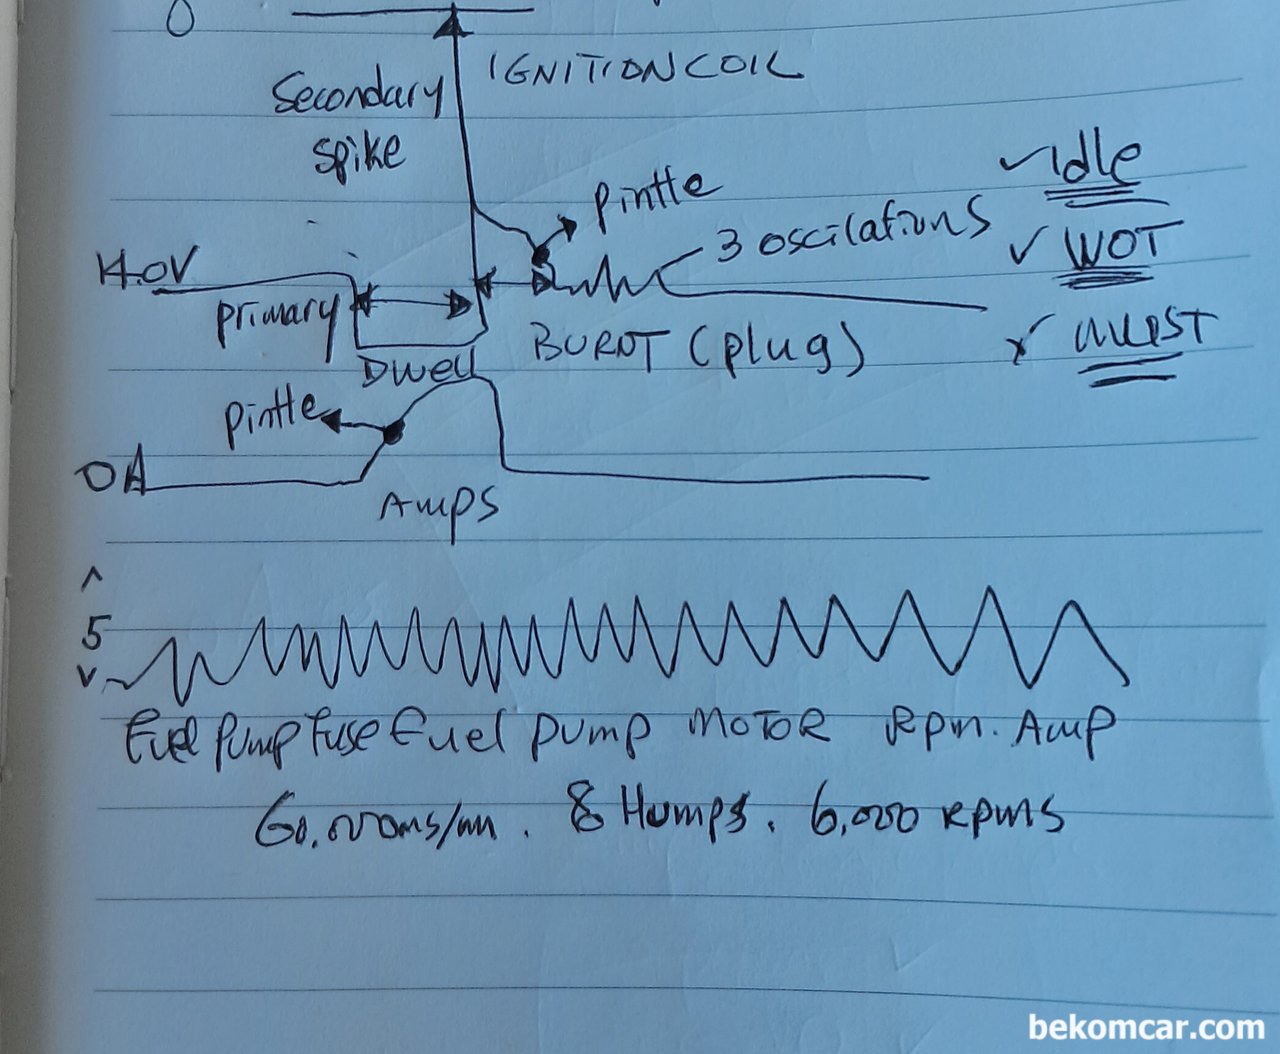 0
IGNITION COIL
Secondary
spike
pintle
3 oscilations
✓ Idle
✓ WOT
14.0V
primary
Dwell
BURNT (plug)
pintle
0A
Amps
^
5
v
Fuel pump fuse Fuel pump MOTOR Rpm. Amp
60,000ms/m . 8 Humps. 6,000 RpmS
bekomcar.com